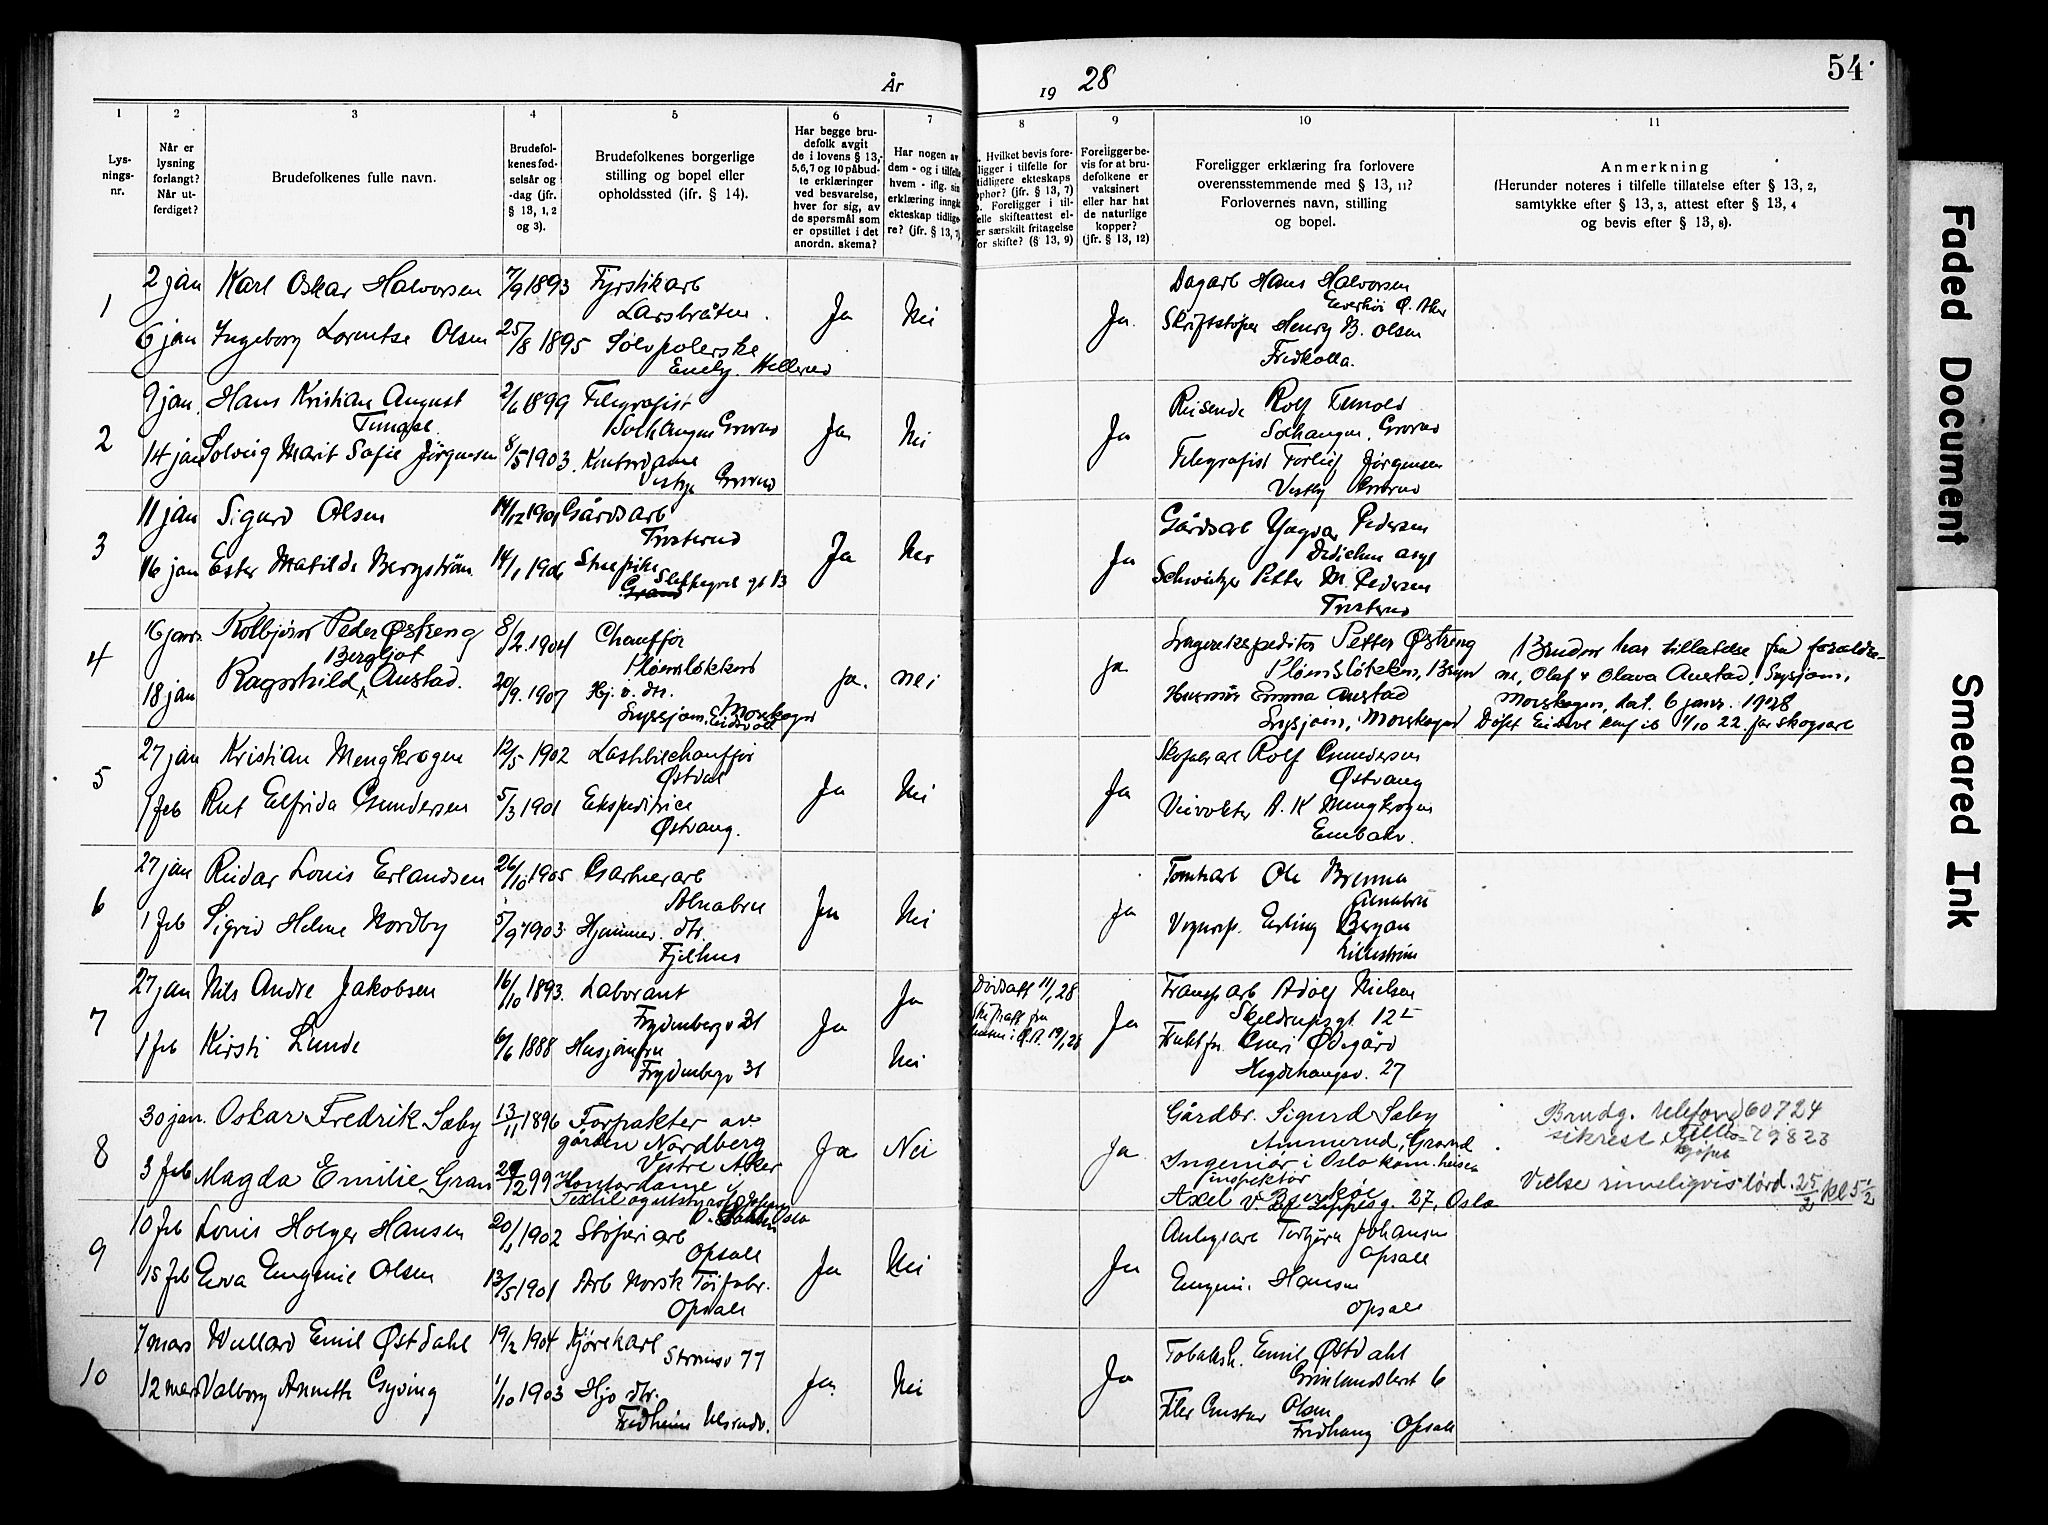 54.
År 19 28
1 2 3 4 5 6 7 8 9 10 11
Lys-
nings-
nr.
Når er
lysning
forlangt?
Når ut-
ferdiget?
Brudefolkenes fulle navn.
Brudefol-
kenes fød-
selsår og
-dag (jfr.
§ 13, 1, 2
og 3).
Brudefolkenes borgerlige
stilling og bopel eller
opholdssted (jfr. § 14).
Har begge bru-
defolk avgit
de i lovens § 13,
5,6,7 og 10 påbud-
te erklæringer
ved besvarelse,
hver for sig, av
de spørsmål som
er opstillet i det
anordn. skema?
Har nogen av
dem - og i tilfelle
hvem - iflg. sin
erklæring inngåt
ekteskap tidlige-
re? (jfr. § 13, 7)
. Hvilket bevis fore-
ligger i tilfelle for
tidligere ekteskaps
ophør? (jfr. § 13, 7)
b. Foreligger i til-
felle skifteattest el-
ler særskilt fritagelse
for skifte? (§ 13, 9)
Foreligger be-
vis for at bru-
defolkene er
vaksinert
eller har hat
de naturlige
kopper?
(jfr. § 13, 12)
Foreligger erklæring fra forlovere
overensstemmende med § 13, 11?
Forlovernes navn, stilling
og bopel.
Anmerkning
(Herunder noteres i tilfelle tillatelse efter § 13, 2,
samtykke efter § 13, 3, attest efter § 13, 4
og bevis efter § 13, 8).
1
2 jan Karl Oskar Halvorsen 7/9 1893 Fyrstikarb
Larsbråten. Ja Nei Ja. Dagarb Hans Halvorsen
Ø. Aker
6 jan Ingeborg Lorentse Olsen 25/8 1895 Sølvpolerske
Hellerud Skriftstøper Henry B. Olsen
Fredkolla.
2
9 jan. Hans Kristian August
2/6 1899 Telegrafist
Solhaugen Grorud Ja Nei Ja Reisende Rolf
Solhaugen, Grorud
14 jan Solveig Marit Sofie Jørgensen 8/5 1903. Kontordame
Vestby Grorud Telegrafist Torleif Jørgensen
Vestby Grorud
3
11 jan Sigurd Olsen 14/12 1901 Gårdsarb
Trosterud Ja Nei Ja Gårdsarb Yngvar Pedersen
Dedichen asyl
16 jan Ester Matilde Bergstrøm 14/1 1906 Stuepike
gt 13 Schweitzer Petter M. Pedersen
Trosterud
4
16 janr. Kolbjørn Peder Østreng 8/2. 1904 Chauffør
Plømsløkken Ja. nei ja Lagerekspeditør Petter Østreng
Plømsløkken, Bryn
18 jan Ragnhild Bergljot Anstad. 20/9. 1907 Hj. v. dtr.
Morskogen
Eidsvoll Husmor Emma Anstad
Morskogen
Bruden har tillatelse fra foreldre-
ne, Olaf & Olava Anstad,
Morskogen, dat. 6 janr. 1928
5
27 jan Kristian Mengkrogen 12/5 1902 Lastbilchauffør
Østdal Ja Nei Ja Rolf Gundersen
Østvang
1 feb Rut Elfrida Gundersen 5/3 1901 Ekspeditrice
Østvang. Veivokter A. K Mengkrogen
6
27 jan Reidar Louis Erlandsen 26/10 1905 Gartnerarb
Alnabru Ja Nei Ja Tomtarb Ole Brenna
Alnabru
1 feb Sigrid Helene Nordby 5/9 1903 Hjemmev. dtr.
Fjellhus Erling Bergan
Lillestrøm
7
27 jan Nils Andre Jakobsen 16/10 1893. Laborant
Frydenbergv 31 Ja Ja Dødsatt 11/1 28
19/1 28 Ja Transp arb Adolf Nielsen
Skeldrupsgt 12
1 feb Kirsti Lunde 6/6 1888 Husjomfru
Frydenbergv 31 Nei Ødegård
Hegdehaugsv. 27
8
30 jan. Oskar Fredrik Sæby 13/11 1896 Forpakter av
gården Nordberg
Vestre Aker Ja Nei Ja Gårdbr. Sigurd Sæby
Ammerud, Grorud
3 feb Magda Emilie Gran 29/12 99 Kontordame i
Oslo Ingeniør i Oslo kom. heisen
inspektør
Axel v. 27, Oslo
Brudg. telefon 60724
sikrest
79823
Vielse rimeligvis lørd. 25/2 kl 5 1/2
9
10 feb Louis Holger Hansen 20/1 1902 Støperiarb
Opsall Ja Nei Ja Anlegsarb Torbjørn Johansen
Opsall
15 feb Eva Eugenie Olsen 13/5 1901 Arb Norsk Tøifabr.
Opsall Eugenie Hansen
Opsall
10
7 mars Willard Emil Østdahl 19/2 1904 Kjørekarl
Strømsv 77 Ja Nei Ja Tobaksh. Emil Østdahl
Grønlandsleret 6
12 mars Valborg Annette Gyving 1/10 1903 Hjv dtr.
Fredheim Ulsrudv. Filer Gustav Olsen
Fredhaug Opsall
Faded Document
Smeared Ink